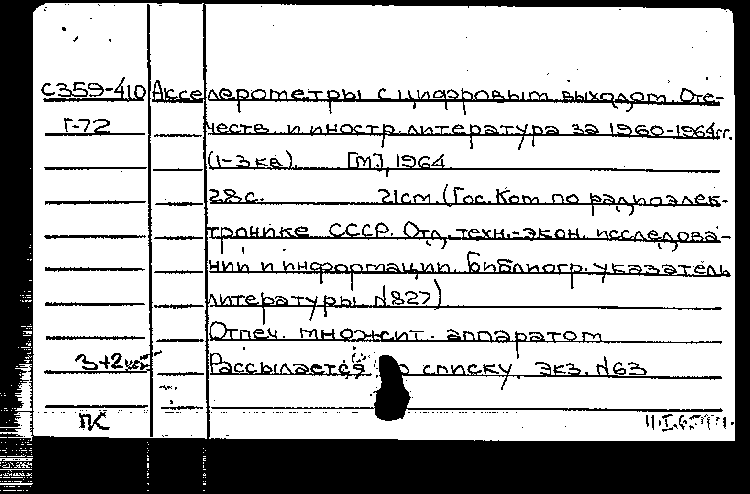 С359-410 Акселерометры с цифровым выходом. Оте-
Г-72 честв. и иностр. литература за 1960-1964гг.
(1-3 кв). [М], 1964
28с. 21см. (Гос. Ком по радиоэлек-
тронике СССР. Отд. техн.-экон. исследова-
ний и информации. Библиогр. указатель
литературы №827)
Отпеч. множит. аппаратом
3+2 Рассылается по списку. Экз. №63
ПК